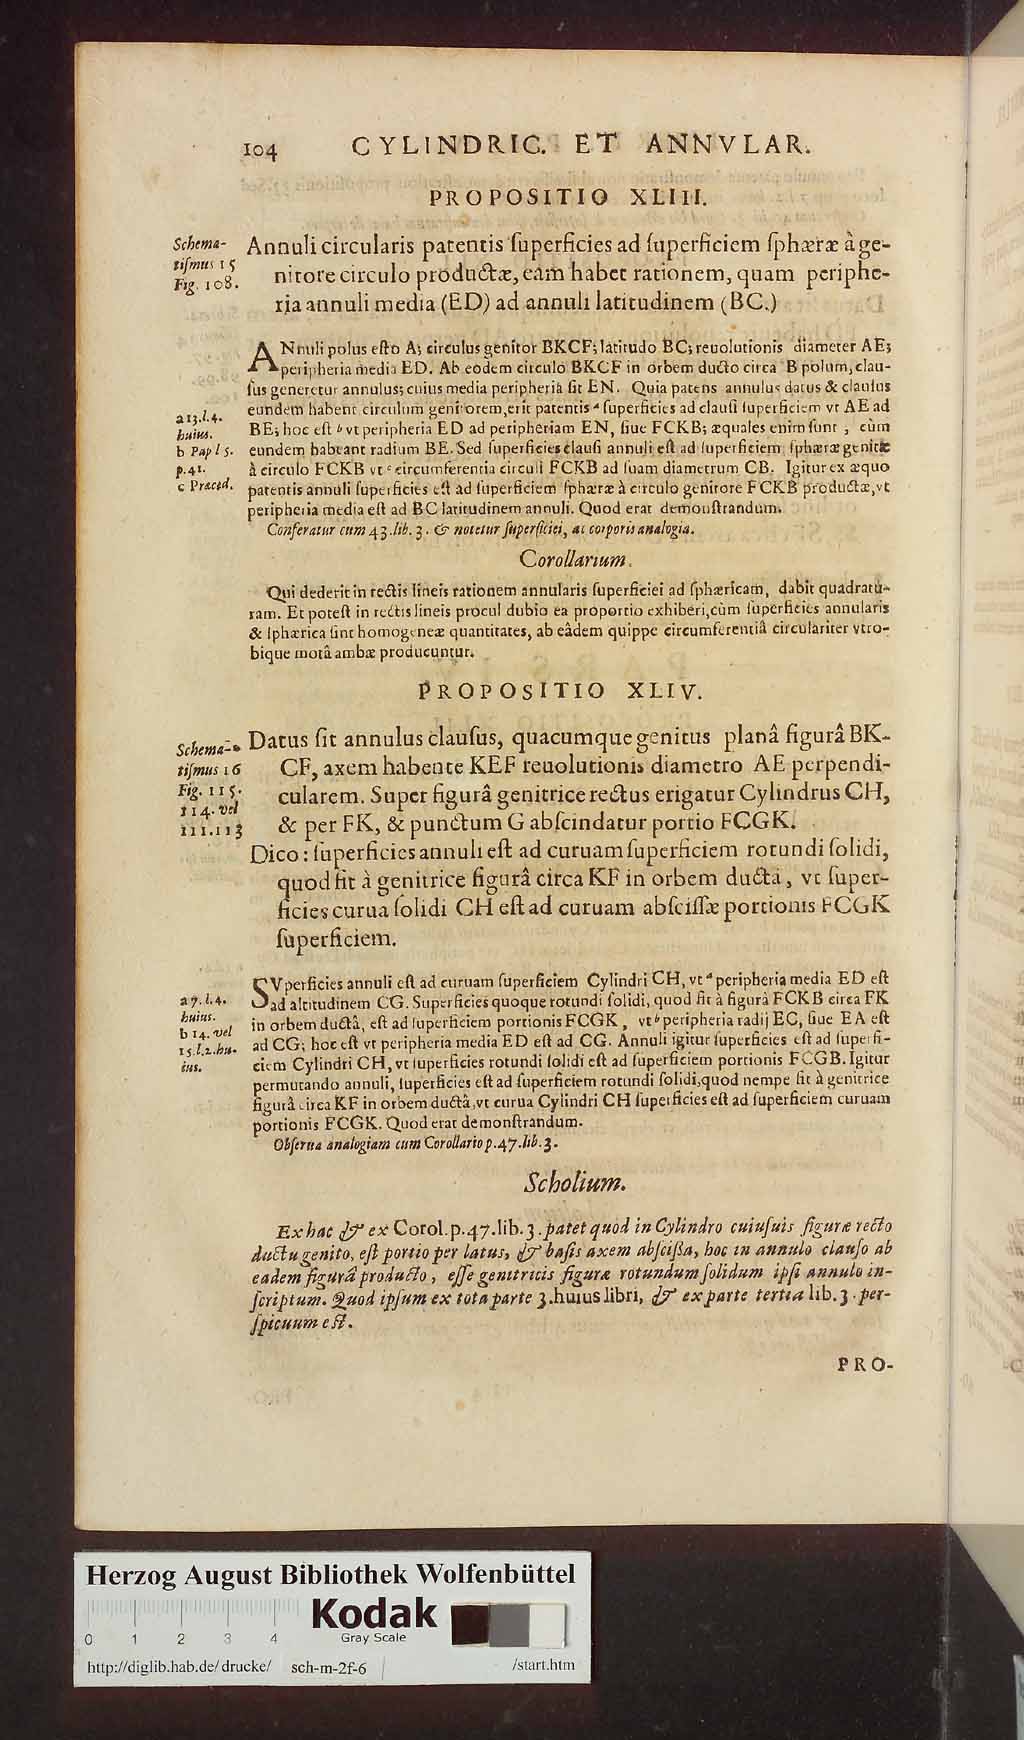 104 CYLINDRIC. ET ANNVLAR.
PROPOSITIO XLIII.
Schema-
tiſmus 15
Fig. 108.
Annuli circularis patentis ſuperficies ad ſuperficiem ſphæræ à ge-
nitore circulo productæ, eam habet rationem, quam periphe-
ria annuli media (ED) ad annuli latitudinem (BC.)
ANnuli polus eſto A; circulus genitor BKCF; latitudo BC; reuolutionis diameter AE;
peripheria media ED. Ab eodem circulo BKCF in orbem ducto circa B polum, clau-
ſus generetur annulus; cuius media peripheria ſit EN. Quia patens annulus datus & clauſus
eundem habent circulum genitorem, erit patentis a ſuperficies ad clauſi ſuperficiem vt AE ad
BE; hoc eſt b vt peripheria ED ad peripheriam EN, ſiue FCKB; æquales enim ſunt, cùm
eundem habeant radium BE. Sed ſuperficies clauſi annuli eſt ad ſuperficiem ſphæræ genitæ
à circulo FCKB vt c circumferentia circuli FCKB ad ſuam diametrum CB. Igitur ex æquo
patentis annuli ſuperficies eſt ad ſuperficiem ſphæræ à circulo genitore FCKB productæ, vt
peripheria media eſt ad BC latitudinem annuli. Quod erat demonſtrandum.
a 13.l.4.
huius.
b Pap l 5.
p.41.
c Præced.
Conferatur cum 43.lib. 3. & notetur ſuperficiei, ac corporis analogia.
Corollarium.
Qui dederit in rectis lineis rationem annularis ſuperficiei ad ſphæricam, dabit quadratu-
ram. Et poteſt in rectis lineis procul dubio ea proportio exhiberi, cùm ſuperficies annularis
& ſphærica ſint homogeneæ quantitates, ab eâdem quippe circumferentiâ circulariter vtro-
bique motâ ambæ producuntur.
PROPOSITIO XLIV.
Schema-
tiſmus 16
Fig. 115.
114. vel
111.113
Datus ſit annulus clauſus, quacumque genitus planâ figurâ BK-
CF, axem habente KEF reuolutionis diametro AE perpendi-
cularem. Super figurâ genitrice rectus erigatur Cylindrus CH,
& per FK, & punctum G abſcindatur portio FCGK.
Dico: ſuperficies annuli eſt ad curuam ſuperficiem rotundi ſolidi,
quod fit à genitrice figurâ circa KF in orbem ductâ, vt ſuper-
ficies curua ſolidi CH eſt ad curuam abſciſſæ portionis FCGK
ſuperficiem.
SVperficies annuli eſt ad curuam ſuperficiem Cylindri CH, vt a peripheria media ED eſt
ad altitudinem CG. Superficies quoque rotundi ſolidi, quod fit à figurâ FCKB circa FK
in orbem ductâ, eſt ad ſuperficiem portionis FCGK, vt b peripheria radij EC, ſiue EA eſt
ad CG; hoc eſt vt peripheria media ED eſt ad CG. Annuli igitur ſuperficies eſt ad ſuperfi-
ciem Cylindri CH, vt ſuperficies rotundi ſolidi eſt ad ſuperficiem portionis FCGB. Igitur
permutando annuli, ſuperficies eſt ad ſuperficiem rotundi ſolidi, quod nempe fit à genitrice
figurâ circa KF in orbem ductâ, vt curua Cylindri CH ſuperficies eſt ad ſuperficiem curuam
portionis FCGK. Quod erat demonſtrandum.
a 7.l.4.
huius.
b 14. vel
15.l.2.hu-
ius.
Obſerua analogiam cum Corollario p.47.lib.3.
Scholium.
Ex hac & ex Corol.p.47.lib.3. patet quòd in Cylindro cuiuſuis figuræ recto
ductu genito, eſt portio per latus, & baſis axem abſciſſa, hoc in annulo clauſo ab
eadem figurâ producto, eſſe genitricis figuræ rotundum ſolidum ipſi annulo in-
ſcriptum. Quod ipſum ex tota parte 3.huius libri, & ex parte tertia lib.3. per-
ſpicuum eſt.
PRO-
Herzog August Bibliothek Wolfenbüttel
Kodak
Gray Scale
0 1 2 3 4
http://diglib.hab.de/drucke/ sch-m-2f-6 /start.htm